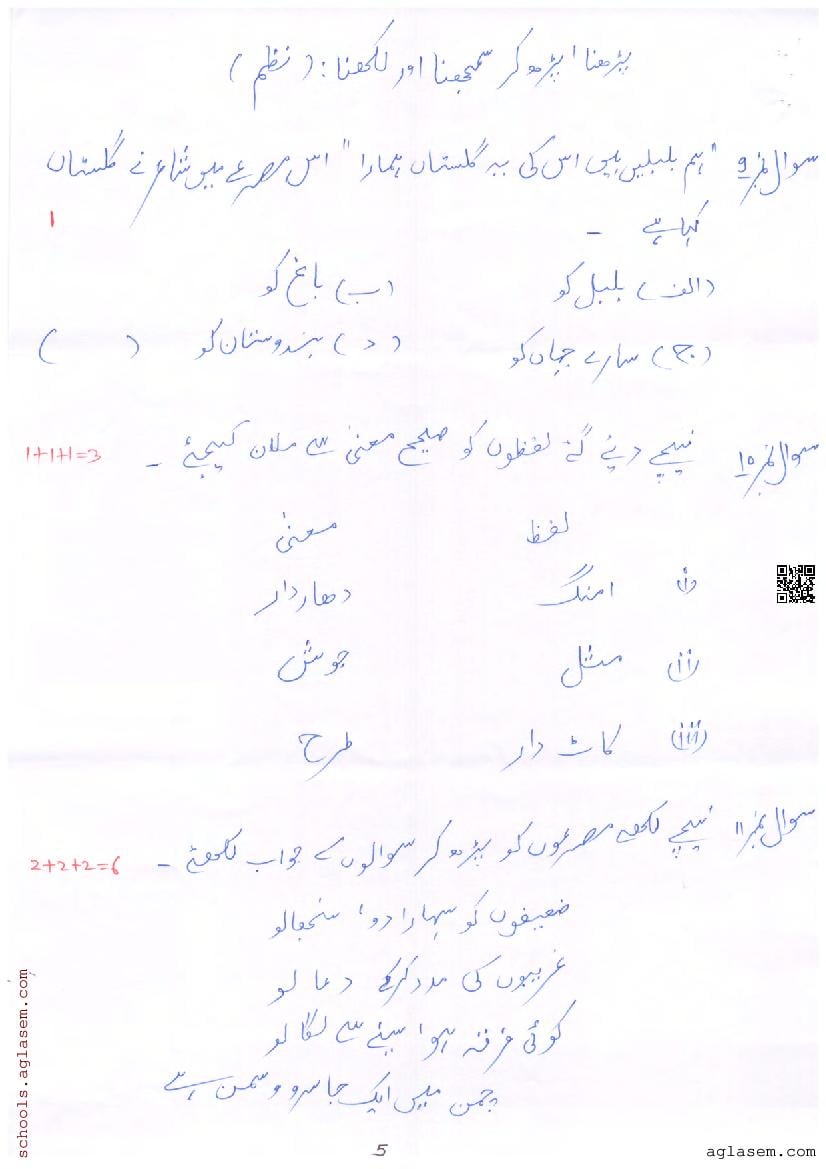 پڑھنا / پڑھ کر سمجھنا اور لکھنا : ( نظم )
سوال نمبر 9 "ہم بلبلیں ہیں اس کی یہ گلستاں ہمارا" اس مصرعے میں شاعر نے گلستاں
کہا ہے - 1
(الف) بلبل کو (ب) باغ کو
(ج) سارے جہاں کو (د) ہندوستان کو ( )
سوال نمبر 10 نیچے دئیے گئے لفظوں کو صحیح معنیٰ سے ملان کیجیئے - 1+1+1=3
لفظ معنیٰ
(i) امنگ دھاردار
(ii) مثل جوش
(iii) کاٹ دار طرح
سوال نمبر 11 نیچے لکھے مصرعوں کو پڑھ کر سوالوں کے جواب لکھئے - 2+2+2=6
ضعیفوں کو سہارا دو / سنبھالو
غریبوں کی مدد کرکے دعا لو
کوئی فرقہ ہو / سینے سے لگا لو
چمن میں ایک جا سرو و سمن ہے
5
schools.aglasem.com
aglasem.com